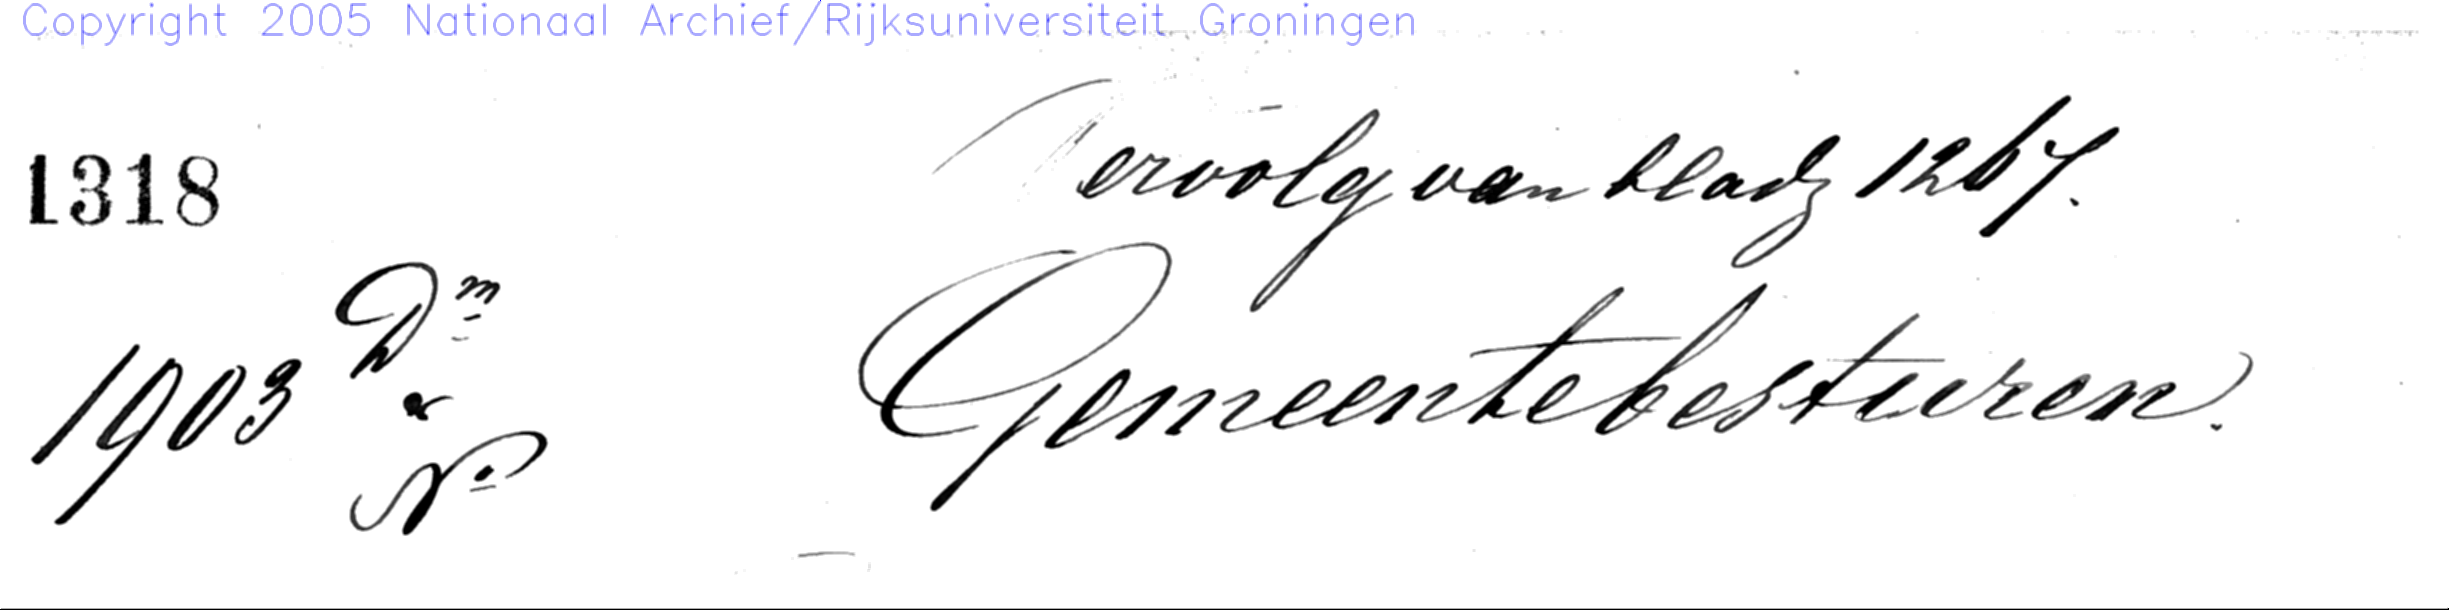 Copyright 2005 Nationaal Archief/Rijksuniversiteit Groningen
1318
Vervolg van bladz 1267.
1903 Dm
en
No
Gemeentebesturen.